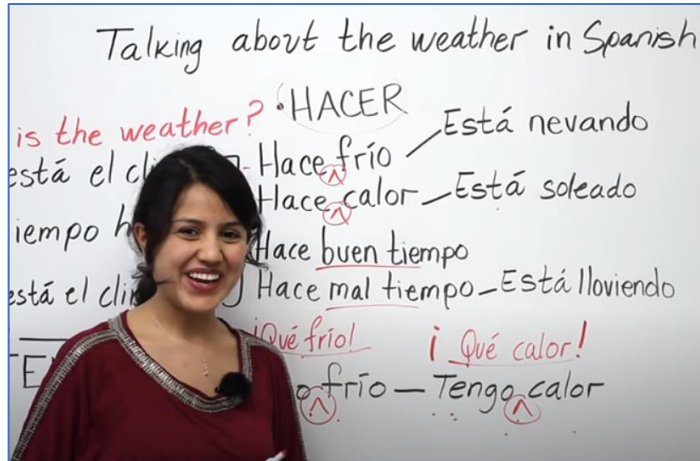 Talking about the weather in Spanish
is the weather? • HACER
está el Hace frío Está nevando
Hace calor – Está soleado
Hace buen tiempo
está el Hace mal tiempo – Está lloviendo
¡Qué frío! ¡Qué calor!
frío – Tengo calor